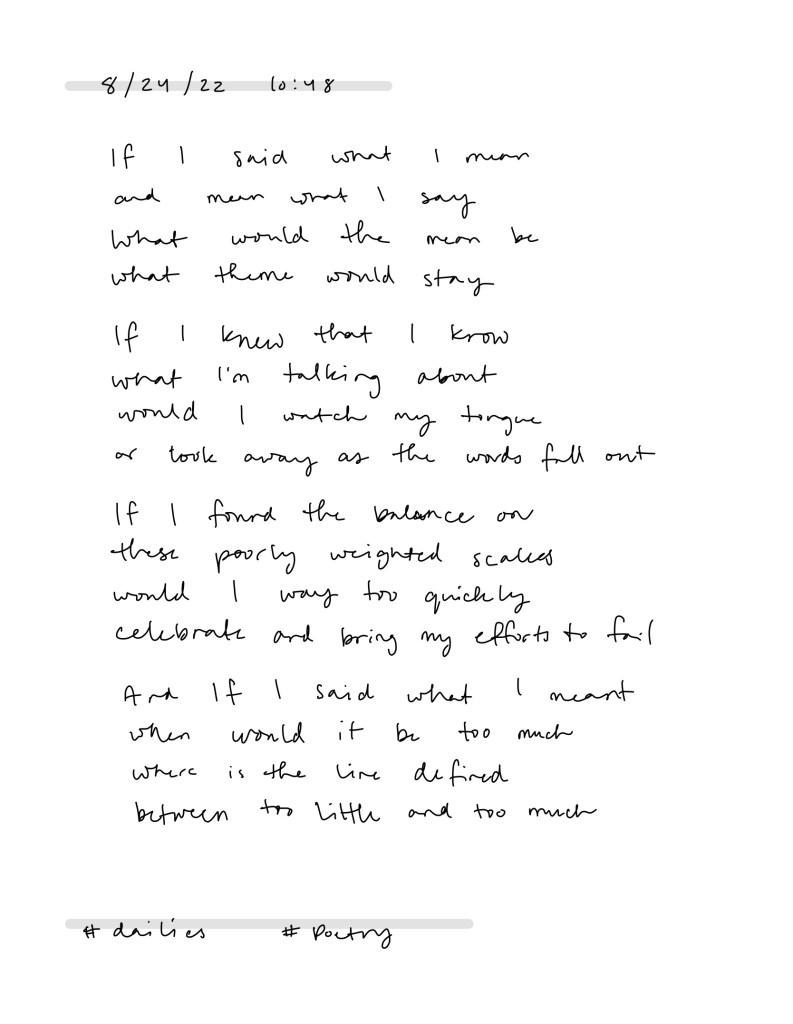 8/24/22 10:48
If I said what I mean
and mean what I say
What would the mean be
what theme would stay
If I knew that I know
what I'm talking about
would I watch my tongue
or look away as the words fall out
If I found the balance on
these poorly weighted scales
would I way too quickly
celebrate and bring my efforts to fail
And If I said what I meant
when would it be too much
where is the line defined
between too little and too much
# dailies # Poetry